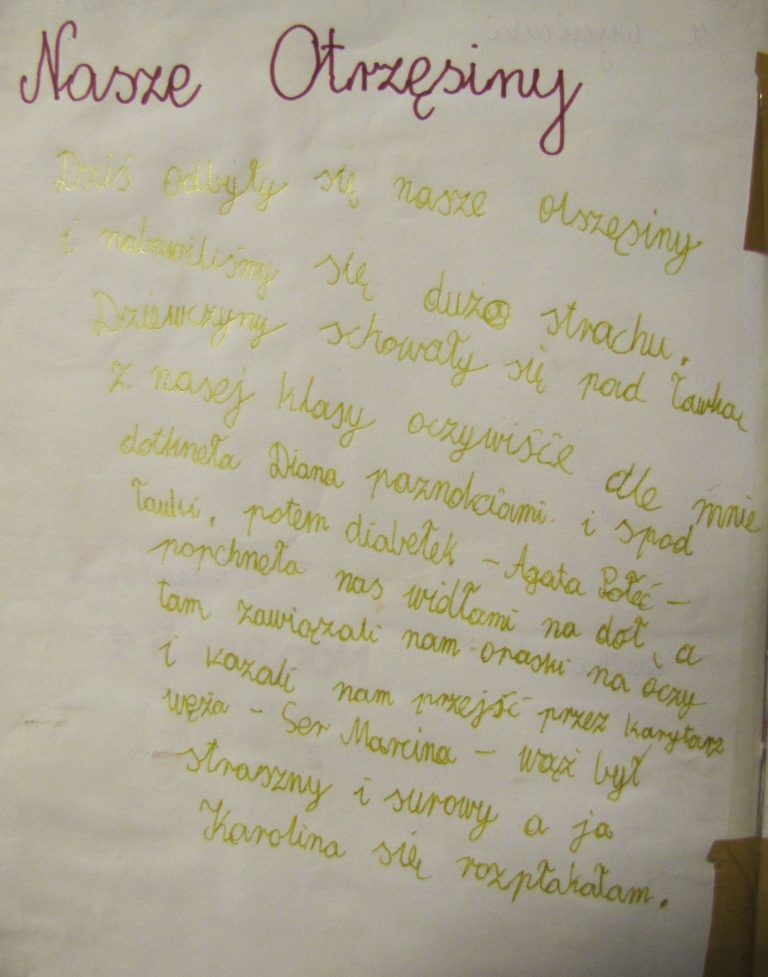 Nasze Otrzęsiny
Dziś odbyły się nasze otszęsiny
i nabawiliśmy się dużo strachu.
Dziewczyny schowały się pod ławką
z nasej klasy oczywiście dle mnie
dotkneła Diana paznokciami i spod
ławki, potem diabełek - Agata Połeć -
popchneła nas widłami na doł, a
tam zawiązali nam oraski na oczy
i kazali nam przejść przez karytarz
węża - Ser Marcina - wąż był
straszny i surowy a ja
Karolina się rozpłakałam.